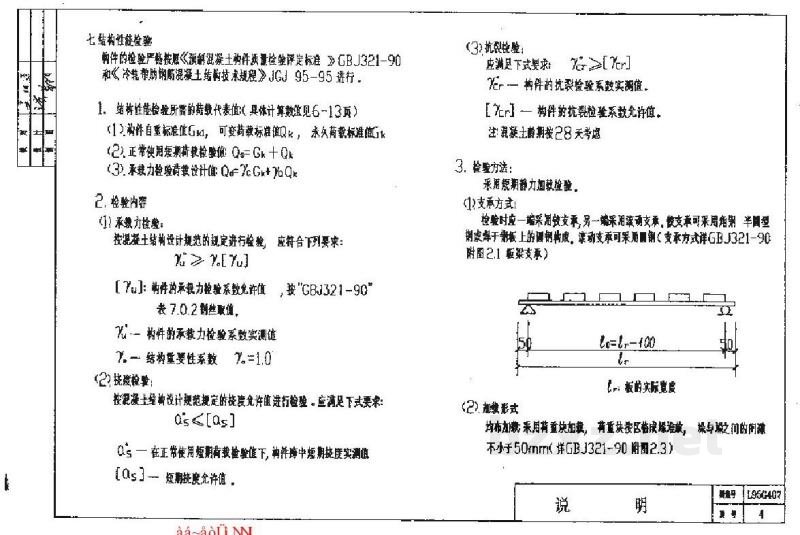 七.结构性能检验
构件的检验严格按照《预制混凝土构件质量检验评定标准》GBJ321-90
和《冷轧带肋钢筋混凝土结构技术规程》JGJ 95-95 进行.
1. 结构性能检验所需的荷载代表值:(具体计算数值见6-13页)
(1).构件自重标准值Gk1, 可变荷载标准值Qk, 永久荷载标准值Gk
(2).正常使用短期荷载检验值: Qs=Gk+Qk
(3).承载力检验荷载设计值: Qd=γGGk+γQQk
2. 检验内容
(1) 承载力检验:
按混凝土结构设计规范的规定进行检验, 应符合下列要求:
γu°≥γo[γu]
[γu]: 构件的承载力检验系数允许值 ,按"GBJ321-90"
表 7.0.2 钢丝取值.
γu°— 构件的承载力检验系数实测值
γo— 结构重要性系数 γo=1.0
(2) 挠度检验:
按混凝土结构设计规范规定的挠度允许值进行检验.应满足下式要求:
as°≤[as]
as°— 在正常使用短期荷载检验值下,构件跨中短期挠度实测值
[as]— 短期挠度允许值.
(3).抗裂检验:
应满足下式要求: γcr°≥[γcr]
γcr°— 构件的抗裂检验系数实测值.
[γcr]— 构件的抗裂检验系数允许值.
注:混凝土龄期按28天考虑
3. 检验方法:
采用短期静力加载检验.
(1)支承方式:
检验时应一端采用铰支承,另一端采用滚动支承.铰支承可采用角钢 半圆型
钢或焊于钢板上的圆钢构成. 滚动支承可采用圆钢(支承方式详GBJ321-90
附图2.1 板梁支承)
50
lo=lr-100
50
lr
lr: 板的实际宽度
(2).加载形式
均布加载:采用荷重块加载, 荷重块按区格成堆堆放, 堆与堆之间的间隙
不小于50mm(详GBJ321-90 附图2.3)
说 明
图集号 L95G407
页 号 4